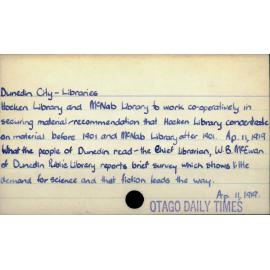 Dunedin City - Libraries
Hocken Library and McNab Library to work co-operatively in
securing material - recommendation that Hocken Library concentrate
on material before 1901 and McNab Library after 1901. Ap. 11, 1919
What the people of Dunedin read - the Chief Librarian, W.B. McEwan
of Dunedin Public Library reports brief survey which shows little
demand for science and that fiction leads the way.
Ap. 11, 1919.
OTAGO DAILY TIMES